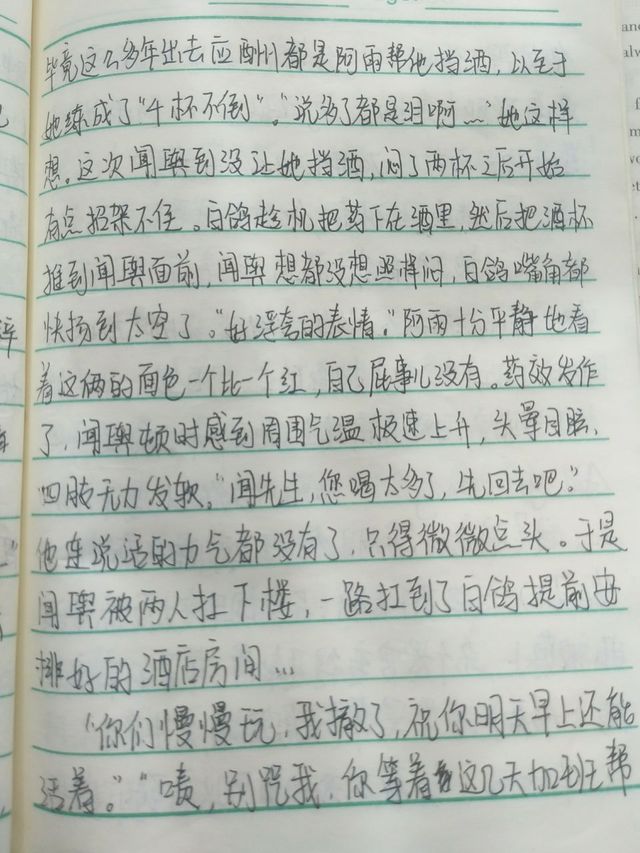 毕竟这么多年出去应酬都是阿雨帮他挡酒，以至于
她练成了“千杯不倒”。“说多了都是泪啊……”她这样
想。这次闻舆到没让她挡酒，闷了两杯之后开始
有点招架不住。白鸽趁机把药下在酒里，然后把酒杯
推到闻舆面前，闻舆想都没想照样闷，白鸽嘴角都
快扬到太空了。“好浮夸的表情。”阿雨十分平静地看
着这俩的面色一个比一个红，自己屁事儿没有。药效发作
了，闻舆顿时感到周围气温极速上升，头晕目眩、
四肢无力发软，“闻先生，您喝太多了，先回去吧。”
他连说话的力气都没有了，只得微微点头。于是
闻舆被两人扛下楼，一路扛到了白鸽提前安
排好的酒店房间…
“你们慢慢玩，我撤了，祝你明天早上还能
活着。”“啧，别咒我，你等着这几天加班帮